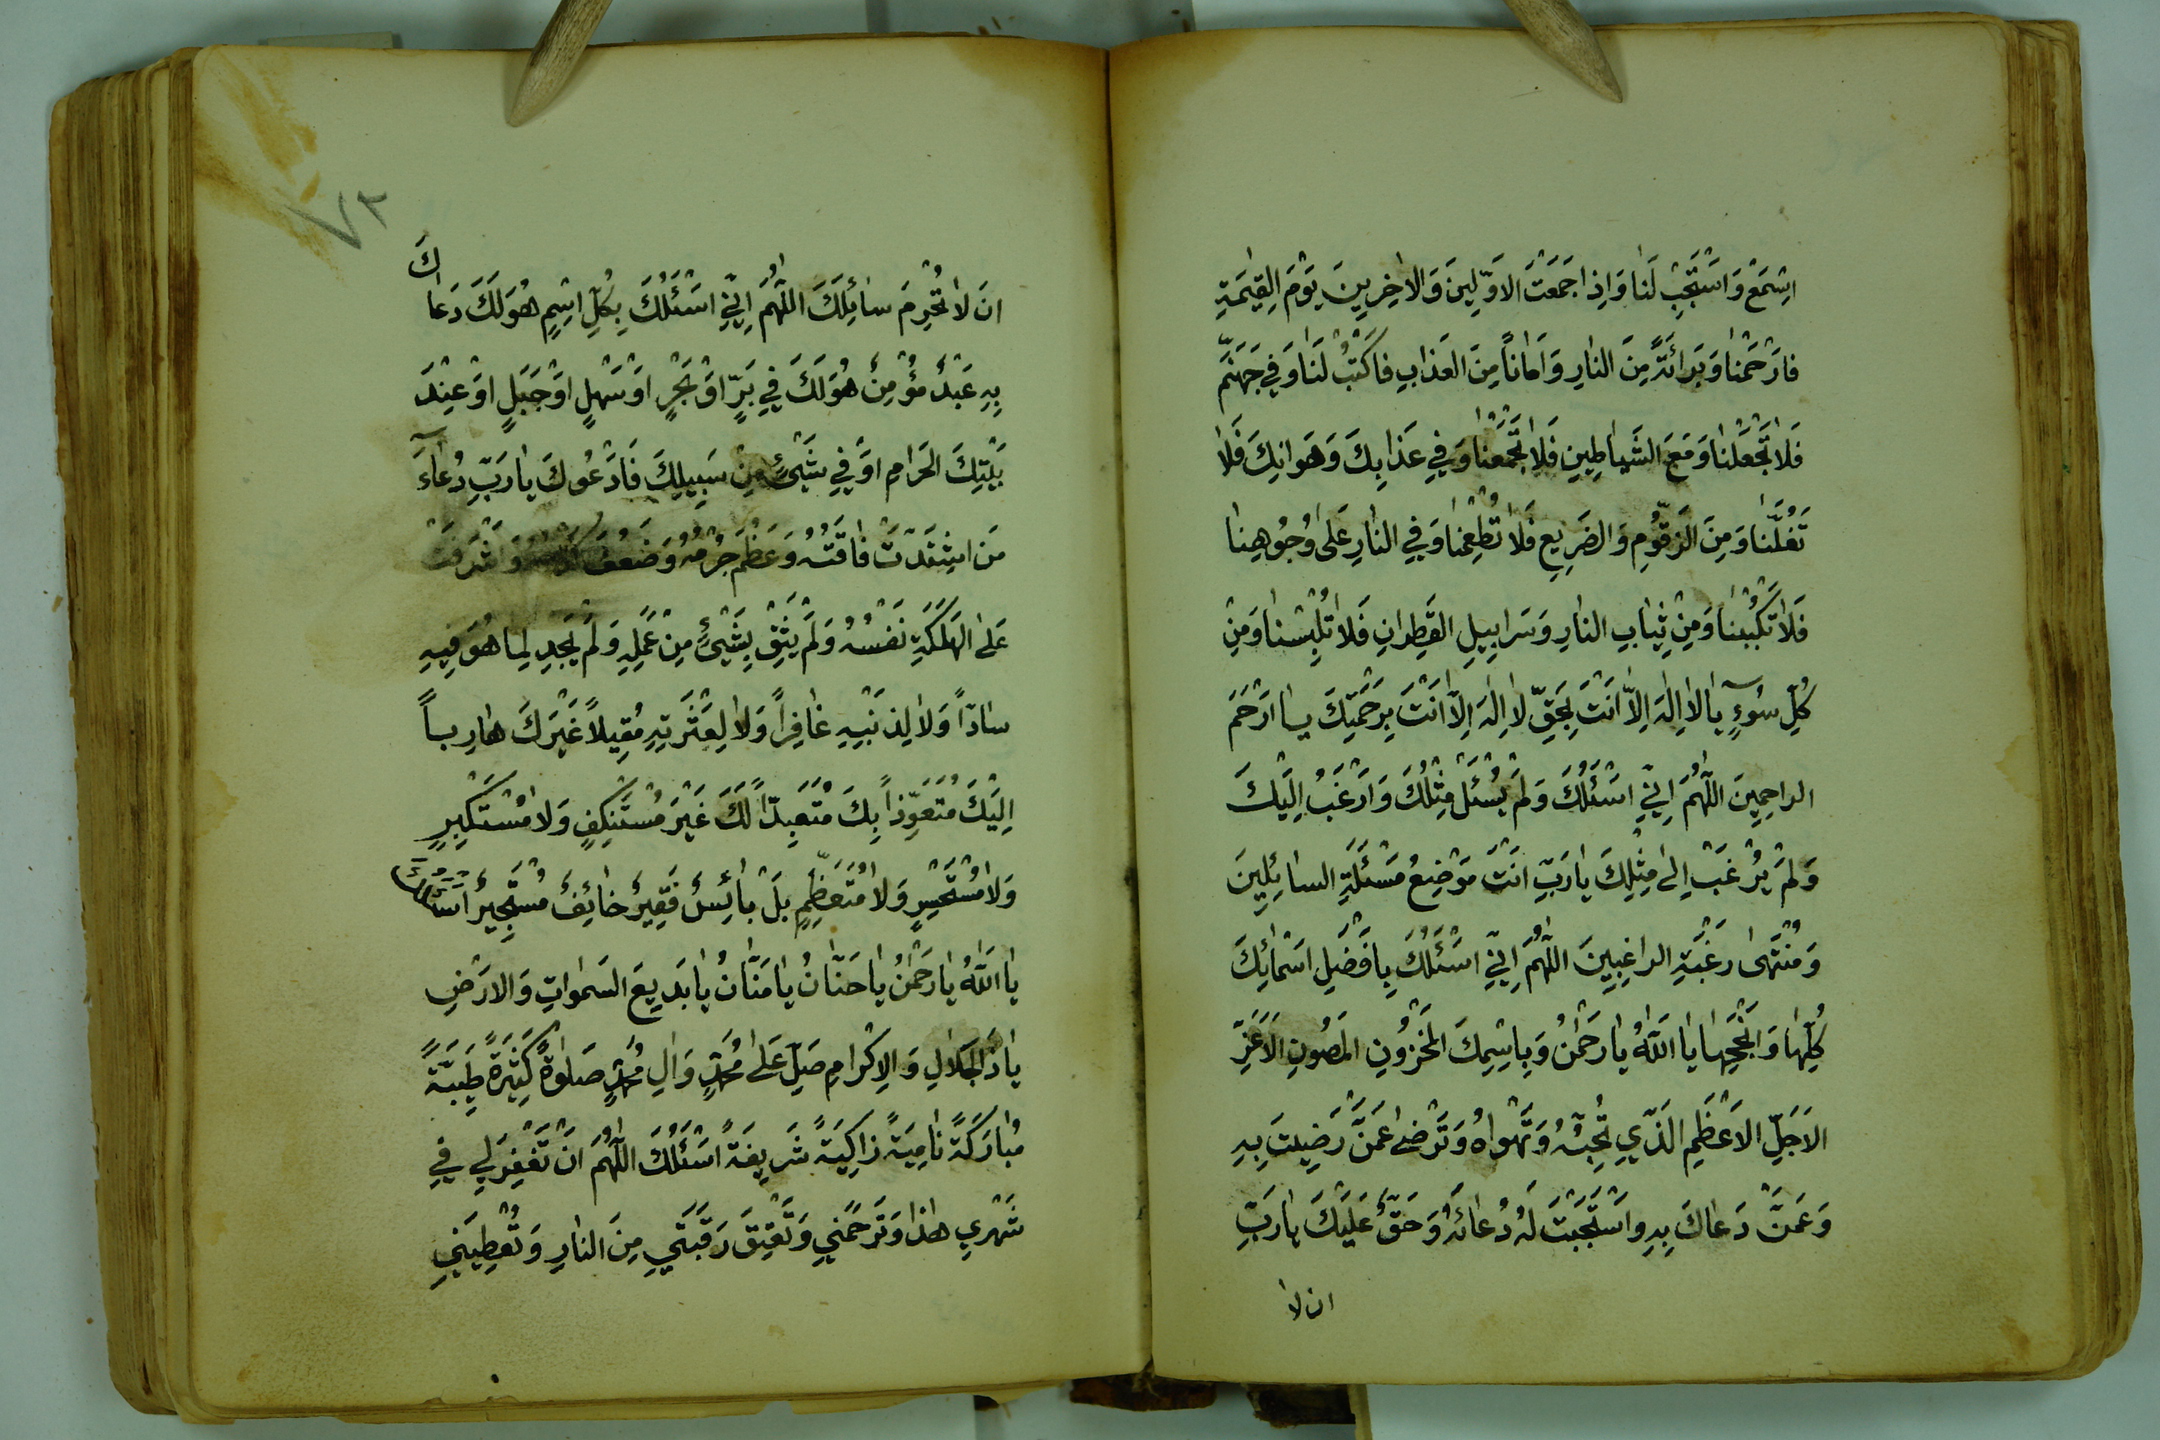 اِسْمَعْ وَاسْتَجِبْ لَنا وَاِذا جَمَعْتَ الاَوَّلينَ وَالاخِرينَ يَوْمَ القِيٰمَةِ
فارْحَمْنا وَبَرائَةً مِنَ النارِ وَاَماناً مِنَ العَذابِ فاكْتُبْ لَنا وَفي جَهَنَّمَ
فَلا تَجْعَلْنا وَمَعَ الشَياطينِ فَلا تَجْمَعْنا وَفي عَذابِكَ وَهَوانِكَ فَلا
تَغُلَّنا وَمِنَ الزَقُّومِ وَالضَريعِ فَلا تُطْعِمْنا وَفي النارِ عَلى وُجُوهِنا
فَلا تَكْبُبْنا وَمِنْ ثِيابِ النارِ وَسَرابيلِ القَطِرانِ فَلا تُلْبِسْنا وَمِنْ
كُلِّ سُوءٍ يا لا اِلٰهَ اِلّا اَنْتَ بِحَقِّ لا اِلٰهَ اِلّا اَنْتَ بِرَحْمَتِكَ يا اَرْحَمَ
الراحِمينَ اللّهُمَّ اِنّي اَسْئَلُكَ وَلَمْ يُسْئَلْ مِثْلُكَ وَاَرْغَبُ اِلَيْكَ
وَلَمْ يُرْغَبْ اِلى مِثْلِكَ يا رَبِّ اَنْتَ مَوْضِعُ مَسْئَلَةِ السائِلينَ
وَمُنْتَهى رَغْبَةِ الراغِبينَ اللّهُمَّ اِنّي اَسْئَلُكَ بِاَفْضَلِ اَسْمائِكَ
كُلِّها وَاَنْجَحِها يا اَللهُ يا رَحْمٰنُ وَبِاسْمِكَ المَخْزُونِ المَصُونِ الاَعَزِّ
الاَجَلِّ الاَعْظَمِ الَّذي تُحِبُّهُ وَتَهْواهُ وَتَرْضى عَمَّنْ رَضيتَ بِهِ
وَعَمَّنْ دَعاكَ بِهِ وَاسْتَجَبْتَ لَهُ دُعائَهُ وَحَقٌّ عَلَيْكَ يا رَبِّ
ان لا
٧٣
اَنْ لا تُحْرِمَ سائِلَكَ اللّهُمَّ اِنّي اَسْئَلُكَ بِكُلِّ اسْمٍ هُوَ لَكَ دَعاكَ
بِهِ عَبْدٌ مُؤْمِنٌ هُوَ لَكَ في بَرٍّ اَوْ بَحْرٍ اَوْ سَهْلٍ اَوْ جَبَلٍ اَوْ عِنْدَ
بَيْتِكَ الحَرامِ اَوْ في شَيْءٍ مِنْ سَبيلِكَ فَاَدْعُوكَ يا رَبِّ دُعاءَ
مَنِ اشْتَدَّتْ فاقَتُهُ وَعَظُمَ جُرْمُهُ وَضَعُفَ وَاَشْرَفَتْ
عَلى الهَلَكَةِ نَفْسُهُ وَلَمْ يَثِقْ بِشَيْءٍ مِنْ عَمَلِهِ وَلَمْ يَجِدْ لِما هُوَ فيهِ
سادّاً وَلا لِذَنْبِهِ غافِراً وَلا لِعَثْرَتِهِ مُقيلاً غَيْرَكَ هارِباً
اِلَيْكَ مُتَعَوِّذاً بِكَ مُتَعَبِّداً لَكَ غَيْرَ مُسْتَنْكِفٍ وَلا مُسْتَكْبِرٍ
وَلا مُسْتَحْسِرٍ وَلا مُتَعَظِّمٍ بَلْ بائِسٌ فَقيرٌ خائِفٌ مُسْتَجيرٌ اَسْئَلُكَ
يا اَللهُ يا رَحْمٰنُ يا حَنّانُ يا مَنّانُ يا بَديعَ السَمٰواتِ وَالارَضِ
يا ذَا الجَلالِ وَالاِكْرامِ صَلِّ عَلى مُحَمَّدٍ وَالِ مُحَمَّدٍ صَلوةً كَثيرَةً طَيِّبَةً
مُبارَكَةً نامِيَةً زاكِيَةً شَريفَةً اَسْئَلُكَ اللّهُمَّ اَنْ تَغْفِرَ لي في
شَهْري هٰذا وَتَرْحَمَني وَتُعْتِقَ رَقَبَتي مِنَ النارِ وَتُعْطِيَني